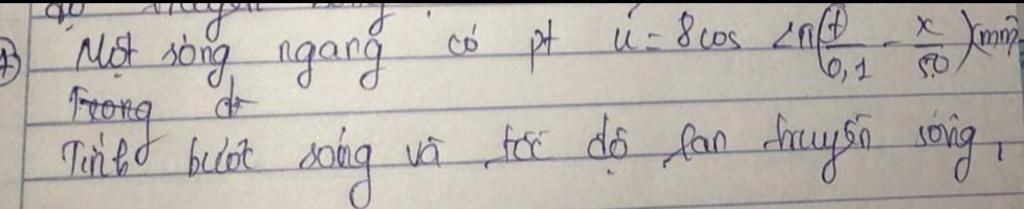 Một sóng ngang có pt u = 8cos 2π(t/0,1 - x/50)(mm)
Trong đó
Tính bước sóng và tốc độ lan truyền sóng,